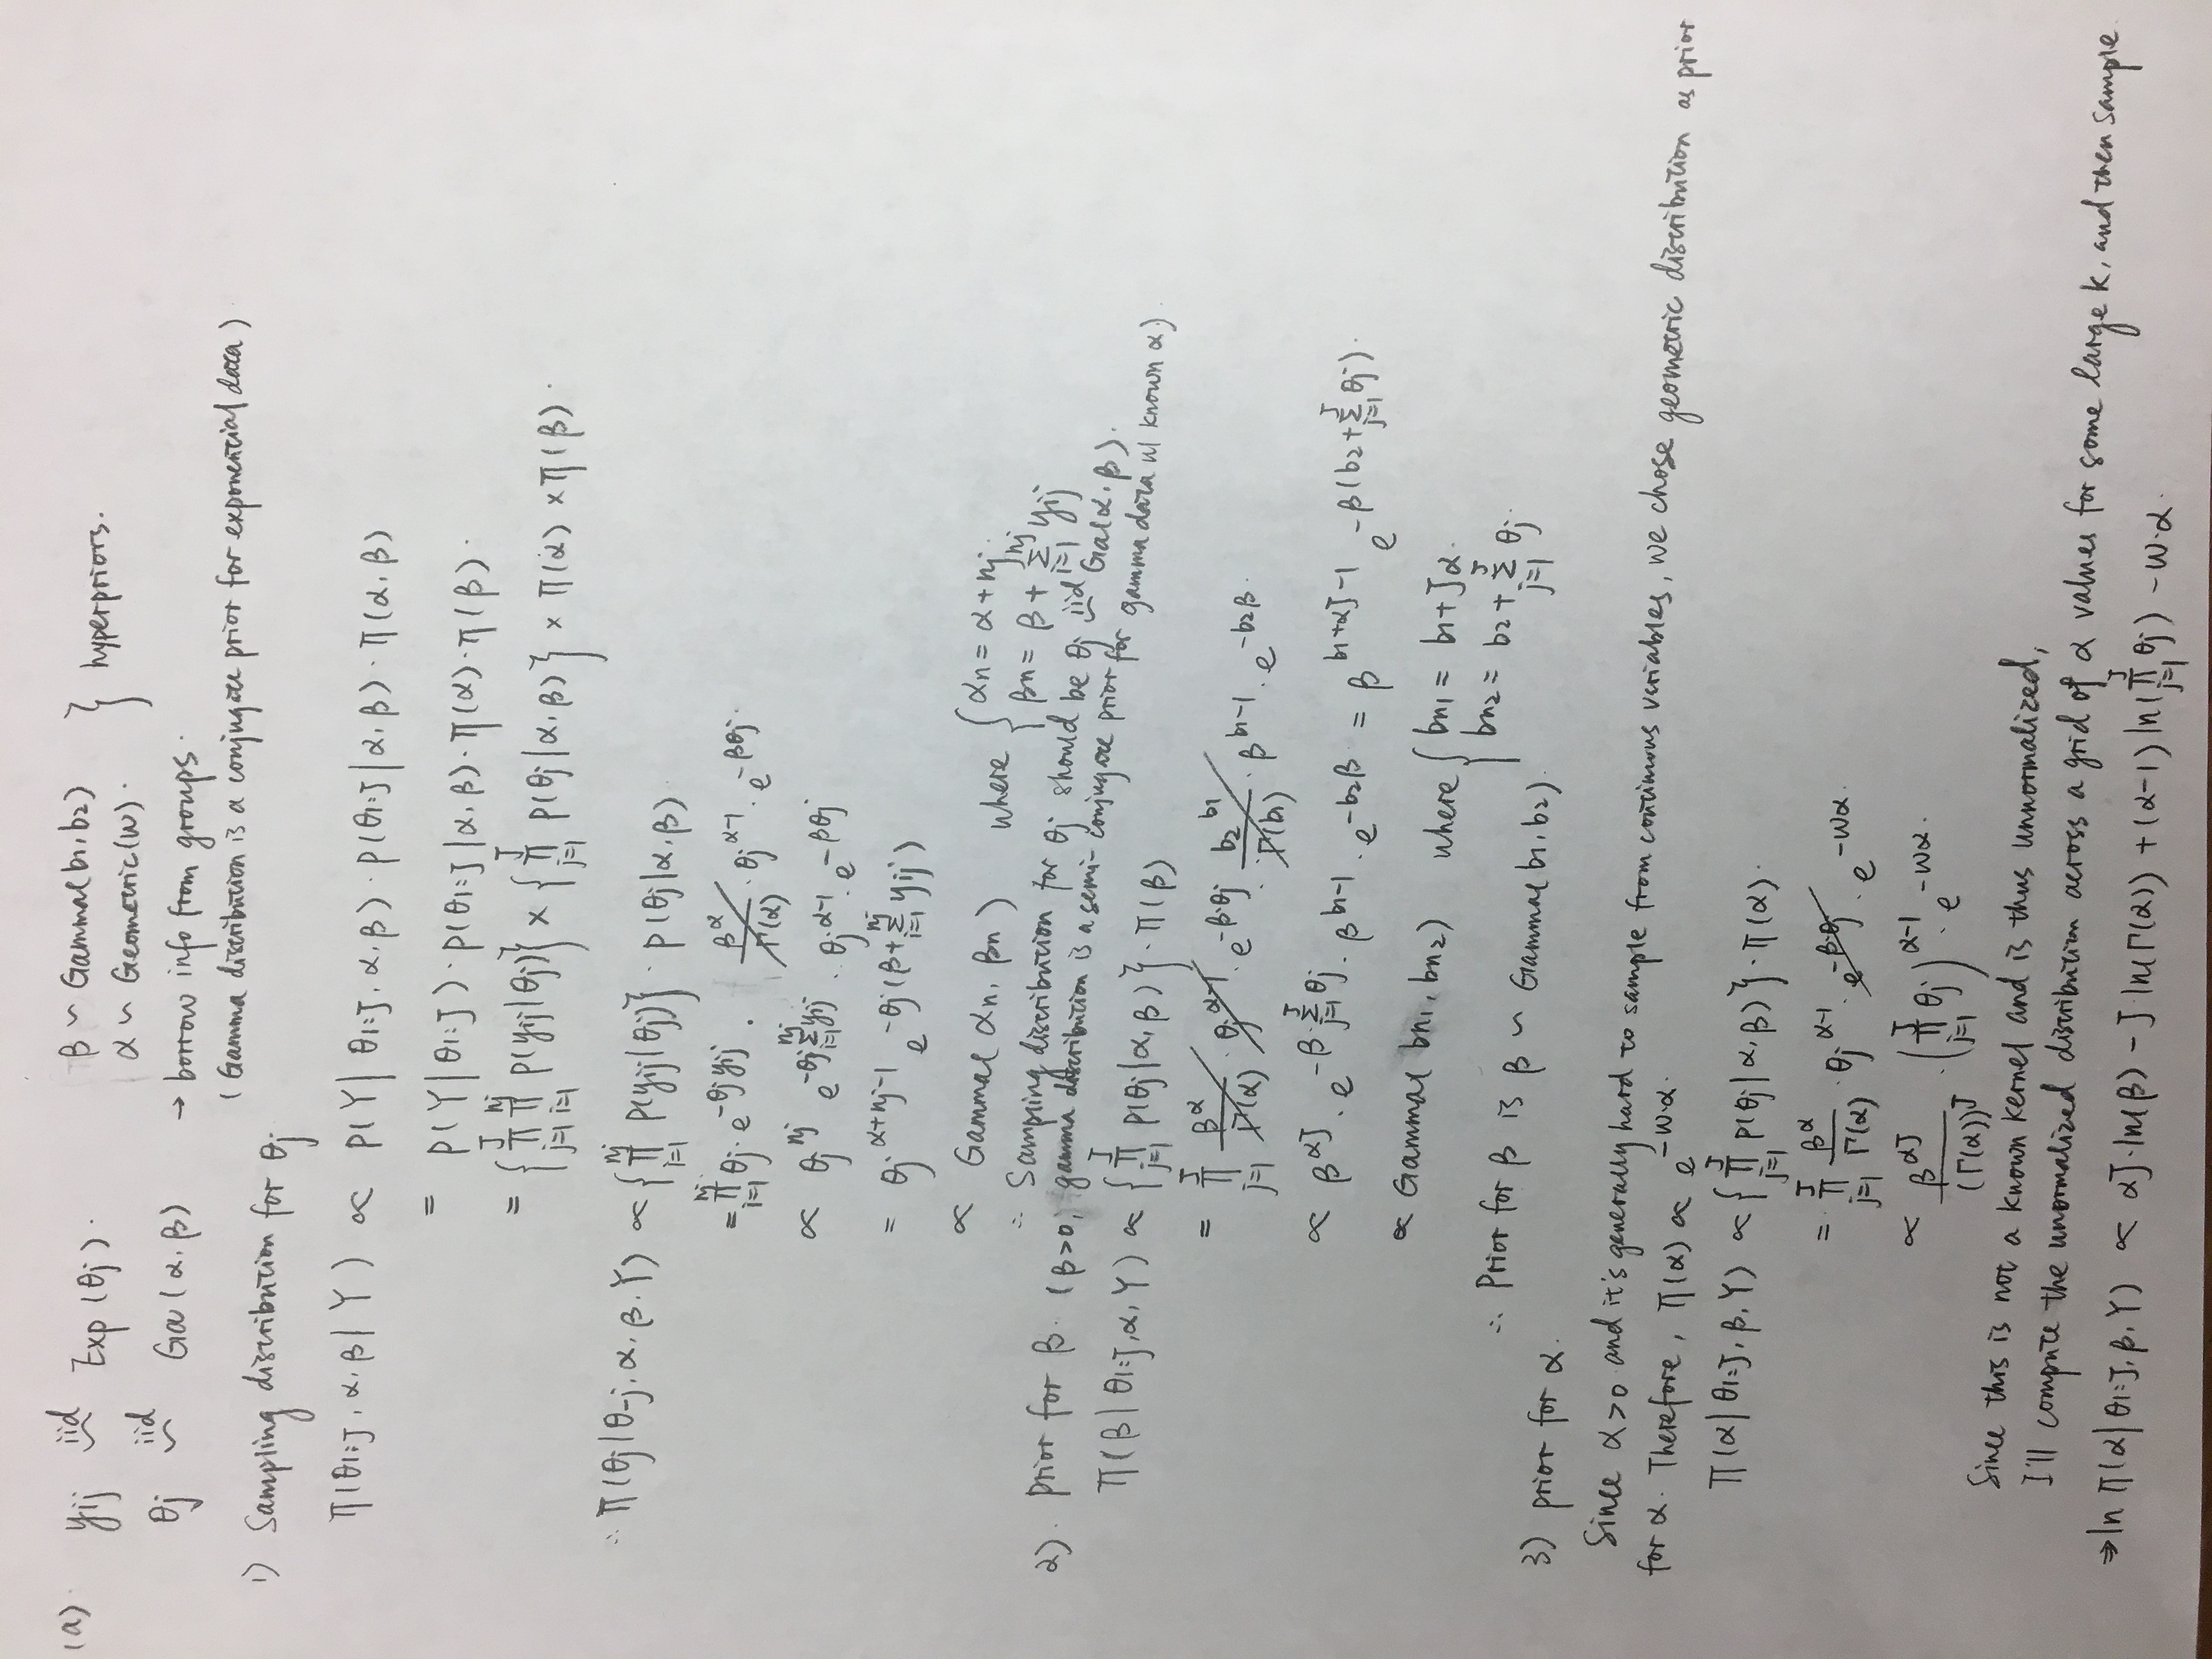 (a). yij iid~ Exp(θj). β ~ Gamma(b1, b2) } hyperpriors.
α ~ Geometric(w).
θj iid~ Ga(α, β) → borrow info from groups.
(Gamma distribution is a conjugate prior for exponential data)
1) Sampling distribution for θj
π(θ1:J, α, β | Y) ∝ p(Y | θ1:J, α, β) · p(θ1:J | α, β) · π(α, β)
= p(Y | θ1:J) · p(θ1:J | α, β) · π(α) · π(β).
= {∏_{j=1}^{J} ∏_{i=1}^{nj} p(yij | θj)} × {∏_{j=1}^{J} p(θj | α, β)} × π(α) × π(β).
∴ π(θj | θ-j, α, β, Y) ∝ {∏_{i=1}^{nj} p(yij | θj)} · p(θj | α, β).
= ∏_{i=1}^{nj} θj · e^{-θj yij} · β^α / Γ(α) · θj^{α-1} · e^{-βθj}.
∝ θj^{nj} e^{-θj ∑_{i=1}^{nj} yij} · θj^{α-1} · e^{-βθj}
= θj^{α+nj-1} e^{-θj(β+∑_{i=1}^{nj} yij)}
∝ Gamma(αn, βn) where { αn = α + nj.
βn = β + ∑_{i=1}^{nj} yij
∴ Sampling distribution for θj should be θj iid~ Ga(α, β).
2). prior for β. (β>0, gamma distribution is a semi-conjugate prior for gamma data w/ known α)
π(β | θ1:J, α, Y) ∝ {∏_{j=1}^{J} p(θj | α, β)} · π(β)
= ∏_{j=1}^{J} β^α / Γ(α) · θj^{α-1} · e^{-β·θj} · b2^{b1} / Γ(b1) · β^{b1-1} · e^{-b2β}.
∝ β^{αJ} · e^{-β·∑_{j=1}^{J} θj} · β^{b1-1} · e^{-b2β} = β^{b1+αJ-1} e^{-β(b2+∑_{j=1}^{J} θj)}.
∝ Gamma(bn1, bn2) where { bn1 = b1 + Jα.
bn2 = b2 + ∑_{j=1}^{J} θj.
∴ Prior for β is β ~ Gamma(b1, b2).
3) prior for α.
Since α>0 and it's generally hard to sample from continuous variables, we chose geometric distribution as prior
for α. Therefore, π(α) ∝ e^{-w·α}.
π(α | θ1:J, β, Y) ∝ {∏_{j=1}^{J} p(θj | α, β)} · π(α).
= ∏_{j=1}^{J} β^α / Γ(α) · θj^{α-1} · e^{-β·θj} · e^{-wα}.
∝ β^{αJ} / (Γ(α))^J · (∏_{j=1}^{J} θj)^{α-1} · e^{-wα}.
Since this is not a known kernel and is thus unnormalized,
I'll compute the unormalized distribution across a grid of α values for some large k, and then sample.
⇒ ln π(α | θ1:J, β, Y) ∝ αJ·ln(β) - J·ln(Γ(α)) + (α-1) ln(∏_{j=1}^{J} θj) - w·α.